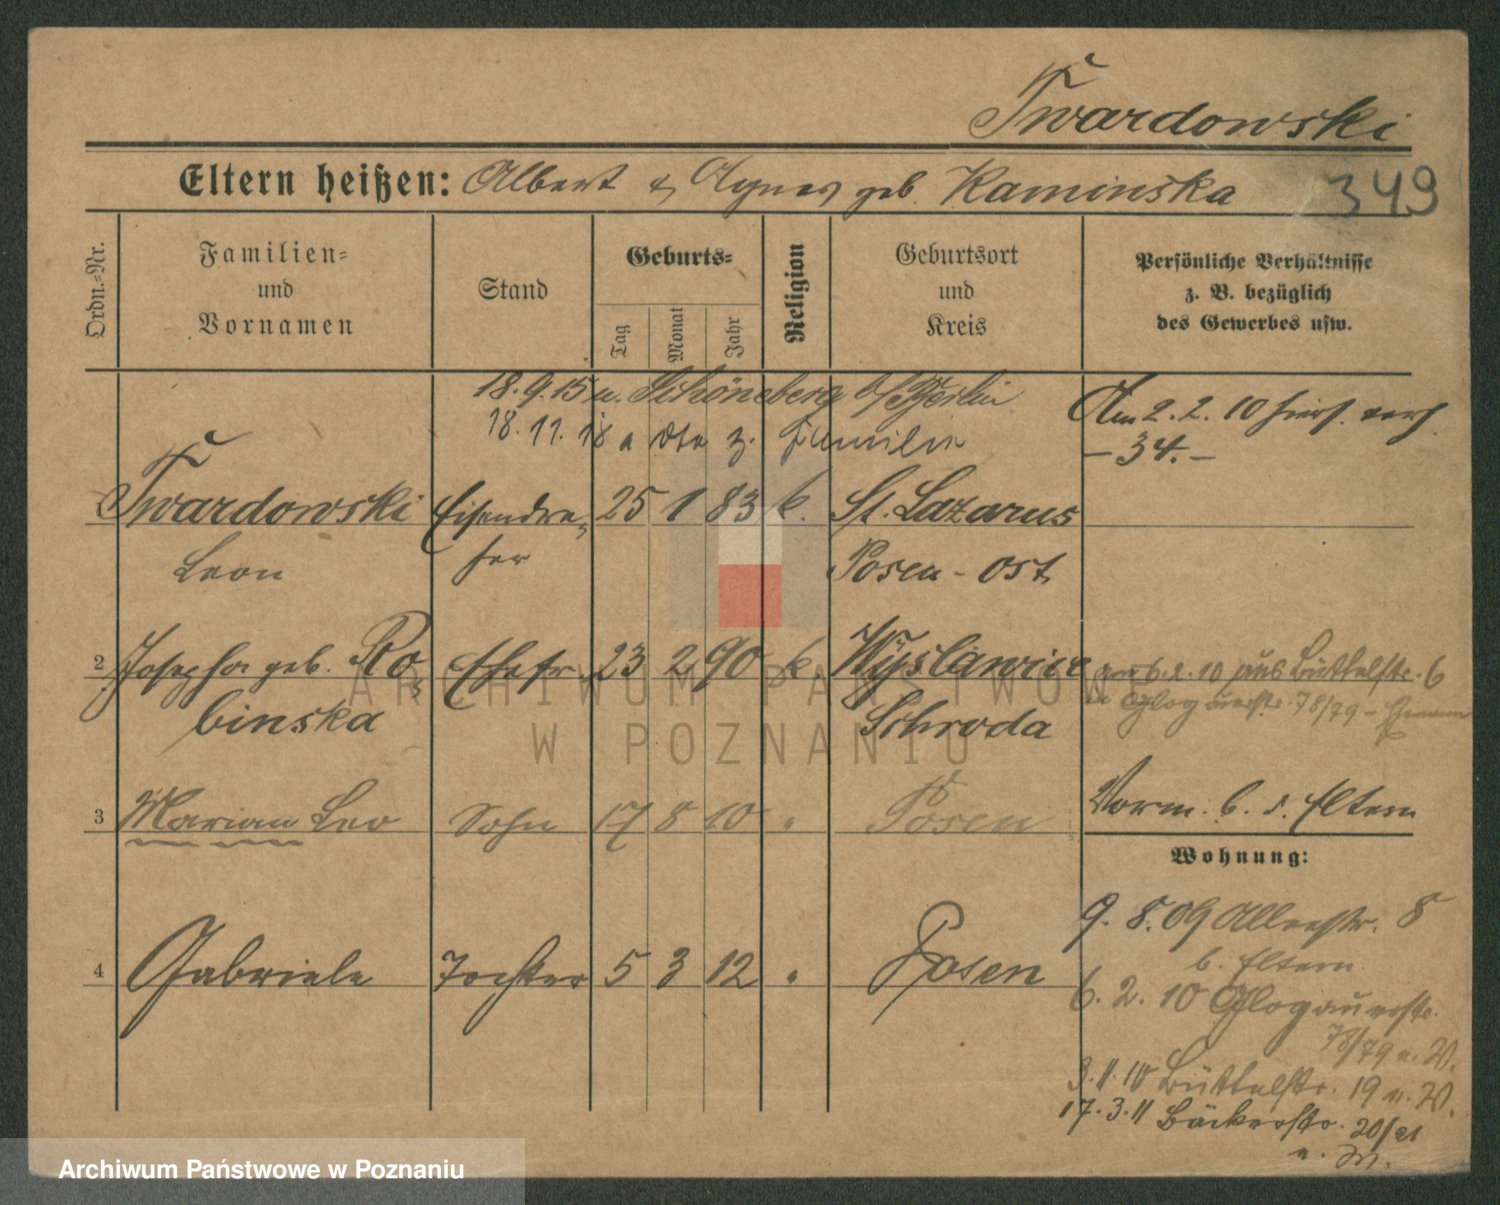 Twardowski
Eltern heißen: Albert & Agnes geb. Kaminska
349
Ordn.-Nr.
Familien-
und
Vornamen
Stand
Geburts-
Tag
Monat
Jahr
Religion
Geburtsort
und
Kreis
Persönliche Verhältnisse
z. B. bezüglich
des Gewerbes usw.
18.9.15 n. Schöneberg b/Berlin
18.11.18 a dto z. Familie
Am 2.2.10 hier verh.
– 34. –
Twardowski Eisendre- 25 1 83 k. St. Lazarus
Leon her Posen-Ost
2 Josepha geb. Ro- Ehefr. 23 2 90 k. Wyslawice
binska Schroda
am 6.2.10 aus Büttelstr. 6
n Glogauerstr. 78/79
3 Marian Leo Sohn 17 8 10 " Posen
Vorm. b. d. Eltern
Wohnung:
4 Gabriele Tochter 5 3 12 " Posen
9.8.09 Alleestr. 8
b. Eltern
6.2.10 Glogauerstr.
78/79 n. W.
3.11.10 Büttelstr. 19 n. W.
17.3.11 Bäckerstr. 20/21
n. W.
ARCHIWUM PAŃSTWOWE
W POZNANIU
Archiwum Państwowe w Poznaniu